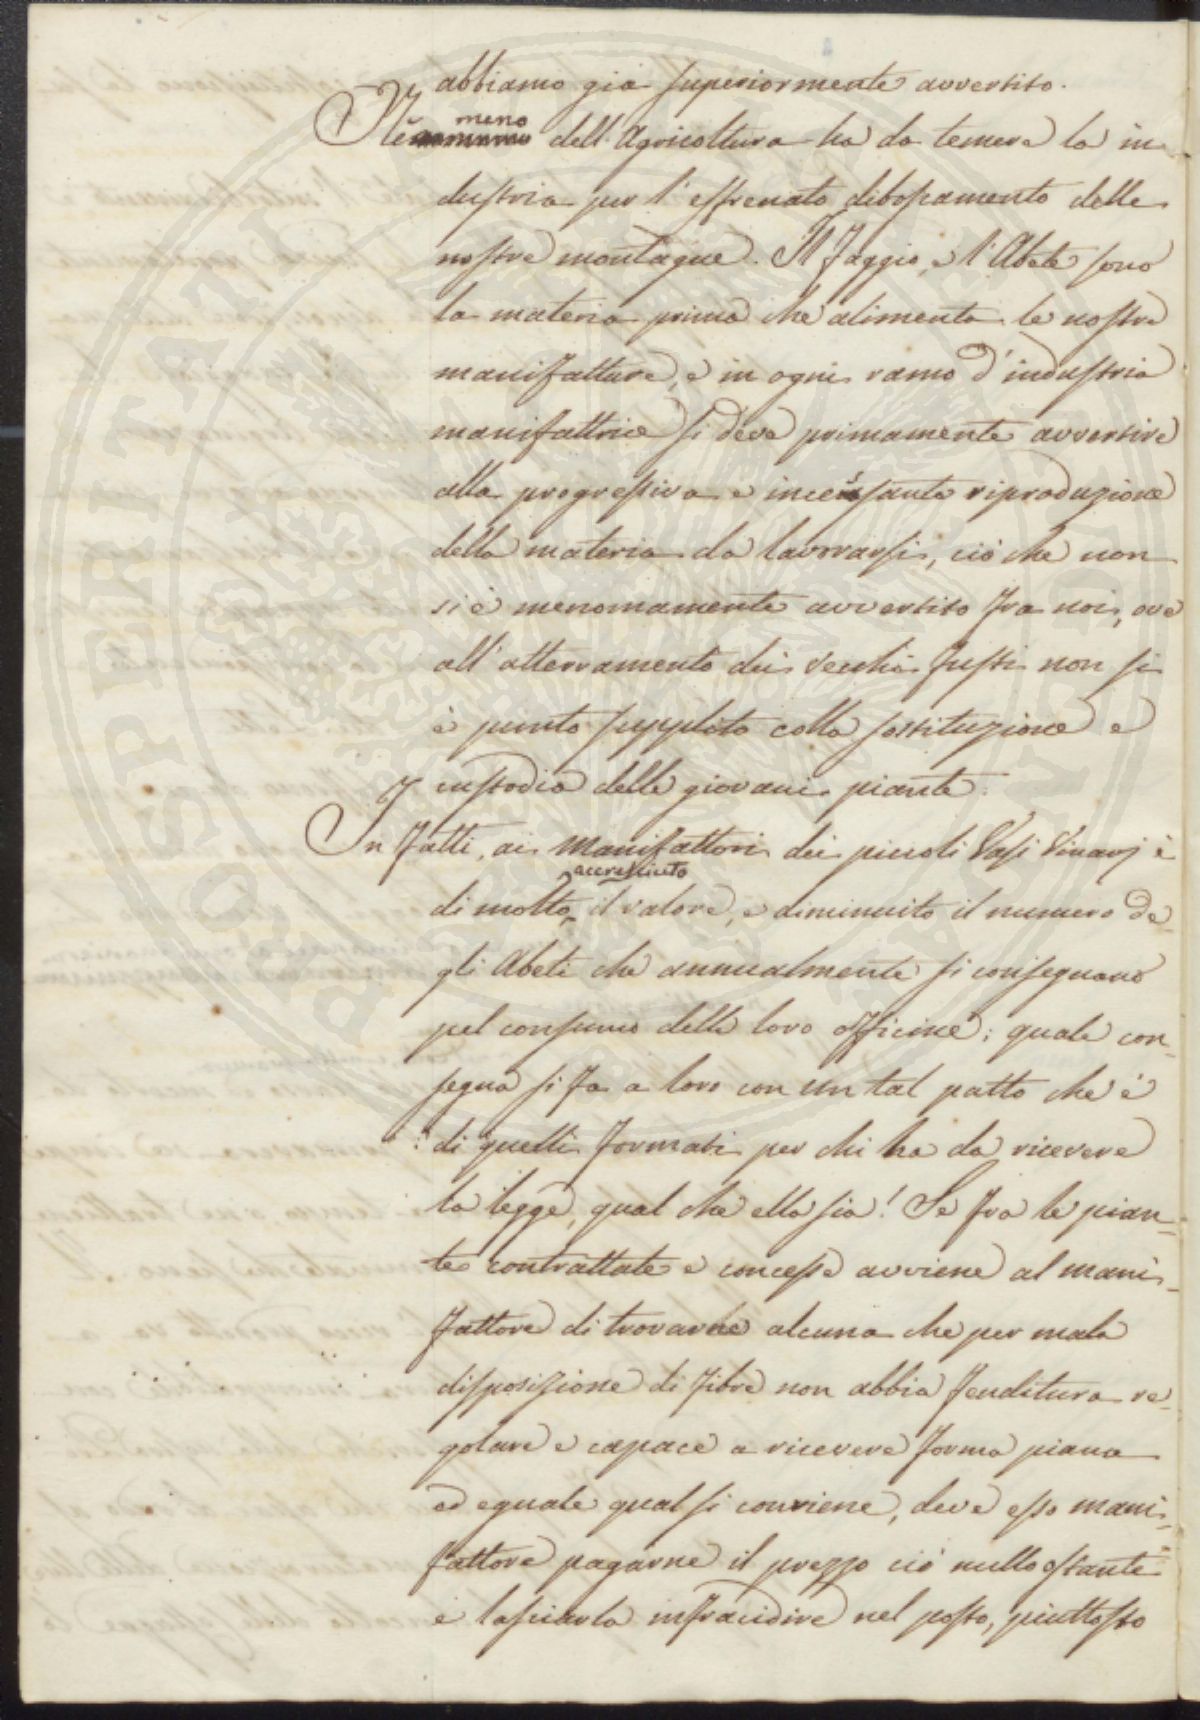 abbiamo già superiormente avvertito.
Nè meno dell'Agricoltura ha da temere la in
dustria per l'effrenato dibossamento delle
nostre montagne. Il Faggio, e l'Abete sono
la materia prima che alimenta le nostre
manifatture, e in ogni ramo d'industria
manifattrice si deve primamente avvertire
alla progressiva e incessante riproduzione
della materia da lavorarsi, ciò che non
si è menomamente avvertito fra noi, ove
all'atterramento dei vecchi fusti non si
è punto supplito colla sostituzione e
custodia delle giovani piante.
In fatti, ai manifattori dei piccoli Vasi Vinarj è
di molto accresciuto il valore, e diminuito il numero de-
gli Abeti che annualmente si consegnano
pel consumo delle loro officine; quale con-
segna si fa a loro con un tal patto che è
di quelli formati per chi ha da ricevere
la legge, qual che ella sia! Se fra le pian-
te contrattate e concesse avviene al mani-
fattore di trovarne alcuna che per mala
disposizione di fibre non abbia fenditura re-
golare e capace a ricevere forma piana
ed eguale qual si conviene, deve esso mani-
fattore pagarne il prezzo ciò nullostante
e lasciarla infracidire nel posto, piuttosto
PROSPERITATI